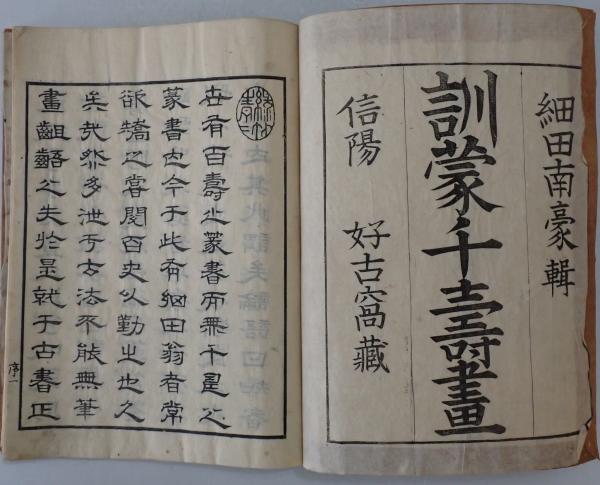 細田南豪輯
訓蒙千壽畫
信陽 好古窩藏
世有百壽之篆書而無千是之
篆書也今于此有細田翁者常
欲矯之嘗閲百史以勤之也久
矣哉然多泄于古法不能無筆
畫齟齬之失於是就于古書正
序一